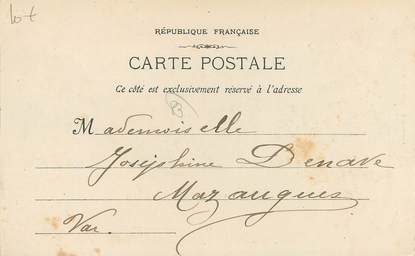 lot
RÉPUBLIQUE FRANÇAISE
CARTE POSTALE
Ce côté est exclusivement réservé à l'adresse
Mademoiselle
Joséphine Denave
Mazaugues
Var.